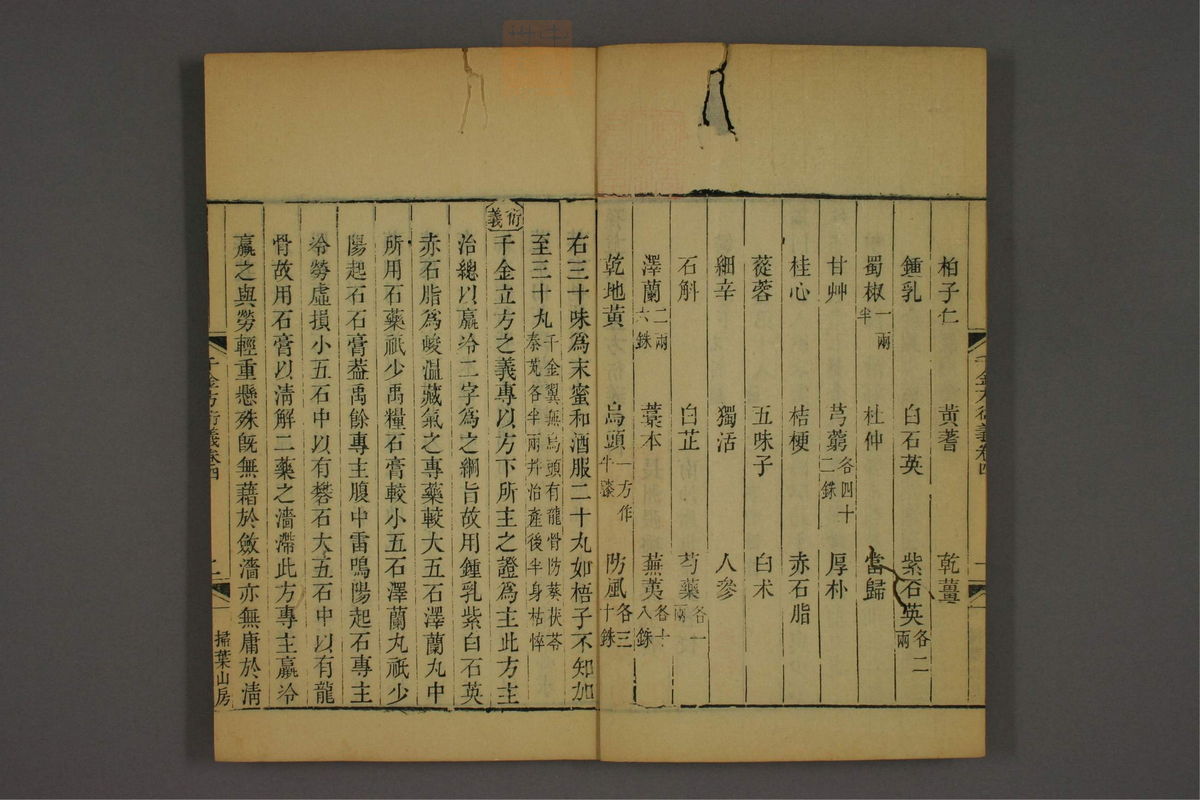 柏子仁 黃蓍 乾薑
鍾乳 白石英 紫石英各二兩
蜀椒一兩半 杜仲 當歸
甘艸 芎藭各四十二銖 厚朴
桂心 桔梗 赤石脂
蓯蓉 五味子 白术
細辛 獨活 人參
石斛 白芷 芍藥各一兩
澤蘭二兩六銖 藁本 蕪荑各十八銖
乾地黃 烏頭一方作牛膝 防風各三十銖
右三十味爲末蜜和酒服二十丸如梧子不知加
至三十丸千金翼無烏頭有龍骨防葵茯苓秦艽各半兩并治產後半身枯悴
衍義
千金立方之義專以方下所主之證爲主此方主
治總以羸冷二字爲之綱旨故用鍾乳紫白石英
赤石脂爲峻溫藏氣之專藥較大五石澤蘭丸中
所用石藥祇少禹糧石膏較小五石澤蘭丸祇少
陽起石石膏葢禹餘專主腹中雷鳴陽起石專主
冷勞虛損小五石中以有礬石大五石中以有龍
骨故用石膏以清解二藥之濇滯此方專主羸冷
羸之與勞輕重懸殊旣無藉於斂濇亦無庸於清
千金方衍義卷四
二
掃葉山房
千金方衍義卷四